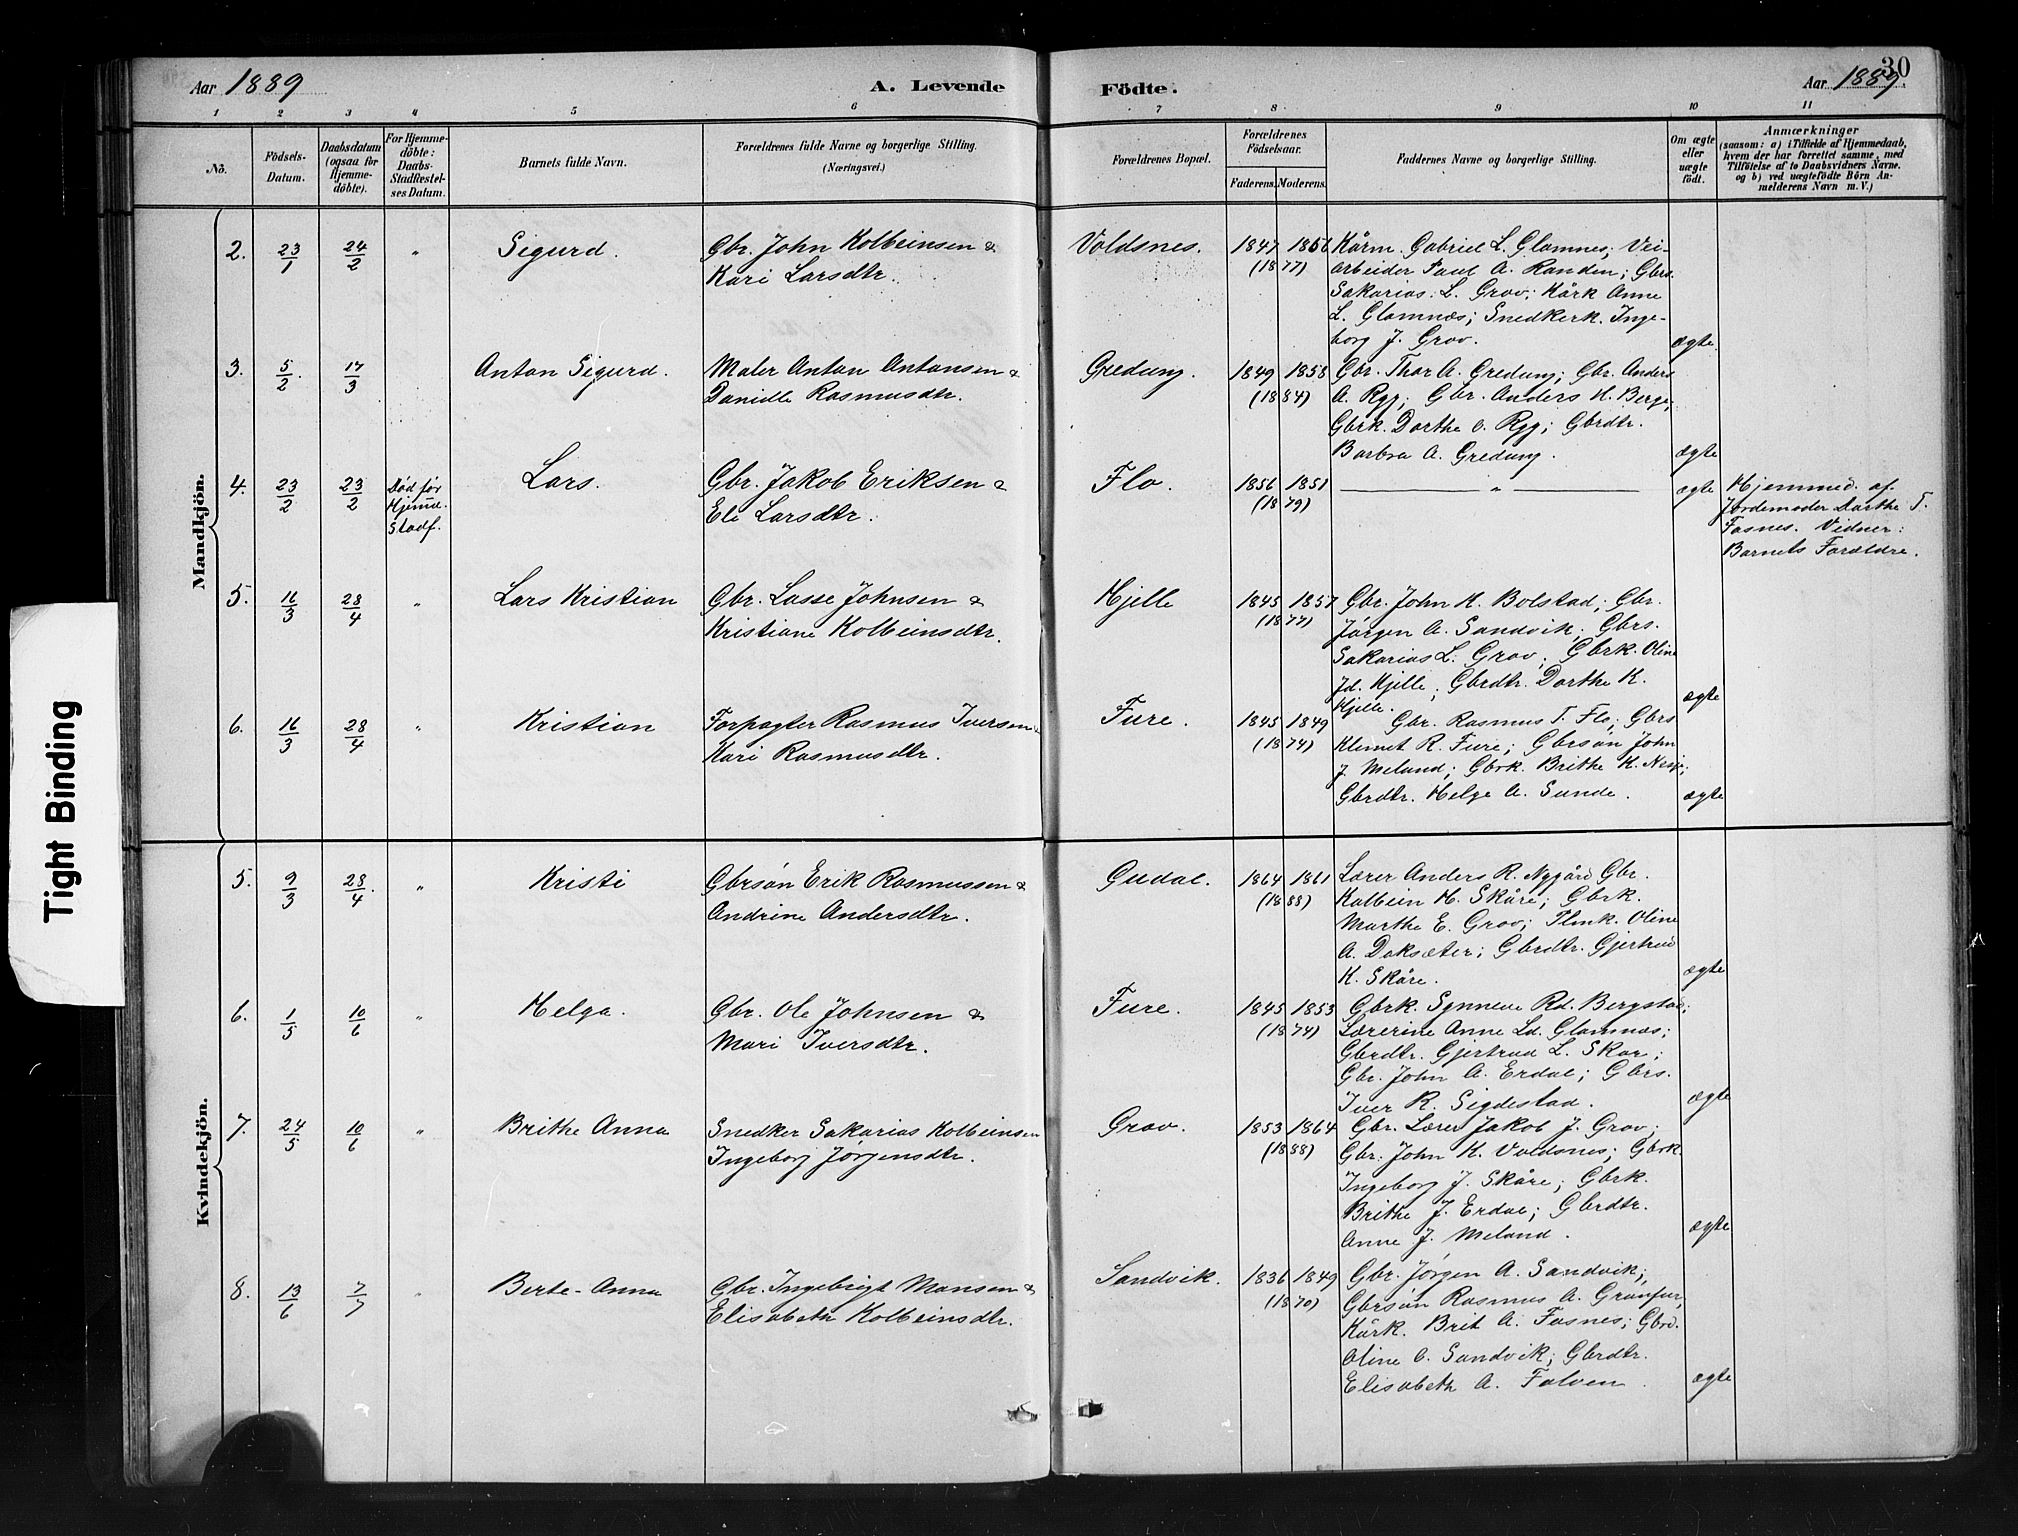 Aar 1889
A. Levende
Födte.
Aar 1889.
30
1 2 3 4 5 6 7 8 9 10 11
No.
Födsels-Datum.
Daabsdatum (ogsaa for Hjemme-döbte).
For Hjemme-döbte: Daabs-Stadfæstel-ses Datum.
Barnets fulde Navn.
Forældrenes fulde Navne og borgerlige Stilling.
(Næringsvei.)
Forældrenes Bopæl.
Forældrenes Födselsaar.
Faderens. Moderens.
Faddernes Navne og borgerlige Stilling.
Om ægte eller uægte födt.
Anmærkninger
(saasom: a) i Tilfælde af Hjemmedaab,
hvem der har forrettet samme, med
Tilföielse af to Daabsvidners Navne.
og b) ved uægtefödte Börn An-
melderens Navn m. V.)
Mandkjön.
2. 23/1 24/2 " Sigurd. Gbr. John Kolbeinsen &
Kari Larsdtr.
Voldsnes. 1847 1856
(1877)
Kårm. Gabriel L. Glamnes; Vei-
arbeider Paul A. Randen; Gbrs.
Sakarias L. Grov; Kårk Anne
L. Glamnæs; Snedkerk. Inge-
borg J. Grov. ægte.
3. 5/2. 17/3 Anton Sigurd. Maler Anton Antonsen &
Danielle Rasmusdtr.
Gredung. 1849 1858
(1884)
Gbr. Thor A. Gredung; Gbr. Anders
A. Ryg; Gbr. Anders H. Berge;
Gbrk. Dorthe O. Ryg; Gbrdtr.
Barbra A. Gredung. ægte
4. 23/2 23/2 Död før
Hjemd.
Stadf.
Lars. Gbr. Jakob Eriksen &
Eli Larsdtr.
Flo. 1856 1851
(1879)
— " — ægte
Hjemmed. af
Jordemoder Dorthe T.
Fosnes. Vidner:
Barnets Forældre.
5. 16/3 28/4 " Lars Kristian Gbr. Lasse Johnsen &
Kristiane Kolbeinsdtr.
Hjelle 1845 1857
(1877)
Gbr. John K. Bolstad; Gbr.
Jørgen A. Sandvik; Gbrs.
Sakarias L. Grov; Gbrk. Oline
Jd. Hjelle; Gbrdtr. Dorthe K.
Hjelle. ægte
6. 16/3 28/4 " Kristian Forpagter Rasmus Iversen &
Kari Rasmusdtr.
Fure. 1845 1849
(1874)
Gbr. Rasmus T. Flo; Gbrs
Klemet R. Fure; Gbrsøn John
J. Meland; Gbrk. Brithe K. Nesje;
Gbrdtr. Helge A. Sunde. ægte
Kvindekjön.
5. 9/3 28/4. " Kristi Gbrsøn Erik Rasmussen &
Andrine Andersdtr.
Gudal. 1864 1861
(1888)
Lærer Anders R. Nygård Gbr.
Kolbein H. Skåre; Gbrk.
Marthe E. Grov; Plmk. Oline
A. Doksæter; Gbrdtr. Gjertrud
K. Skåre. ægte
6. 1/5 10/6 " Helga. Gbr. Ole Johnsen &
Mari Iversdtr.
Fure. 1845 1853
(1874)
Gbrk. Synneve Rd. Bergstad;
Lærerine Anne Ld. Glamnæs;
Gbrdtr. Gjertrud L. Skor;
Gbr. John A. Erdal; Gbrs.
Iver R. Sigdestad. ægte
7. 24/5 10/6 " Brithe Anna Snedker Sakarias Kolbeinsen
Ingeborg Jørgensdtr.
Grov. 1853 1864
(1888)
Gbr. Lærer Jakob J. Grov;
Gbr. John K. Voldsnes; Gbrk.
Ingeborg J. Skåre; Gbrk.
Brithe J. Erdal; Gbrdtr.
Anne J. Meland. ægte
8. 13/6 7/7 " Berte-Anna Gbr. Ingebrigt Monsen &
Elisabeth Kolbeinsdtr.
Sandvik. 1836 1849
(1870)
Gbr. Jørgen A. Sandvik;
Gbrsøn Rasmus A. Gronfur;
Kårk. Brit A. Fosnes; Gbrd.
Oline O. Sandvik; Gbrdtr.
Elisabeth A. Folven. ægte
Tight Binding